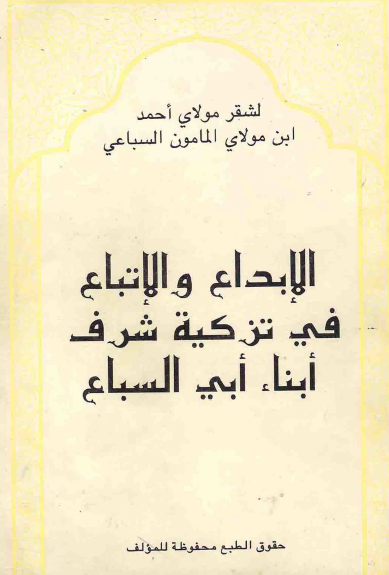 لشقر مولاي أحمد
ابن مولاي المامون السباعي
الإبداع والإتباع
في تزكية شرف
أبناء أبي السباع
حقوق الطبع محفوظة للمؤلف